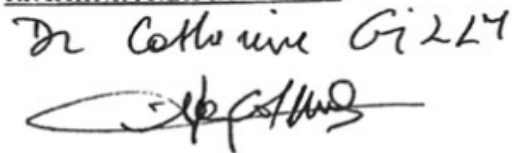 Dr Catherine GILLY